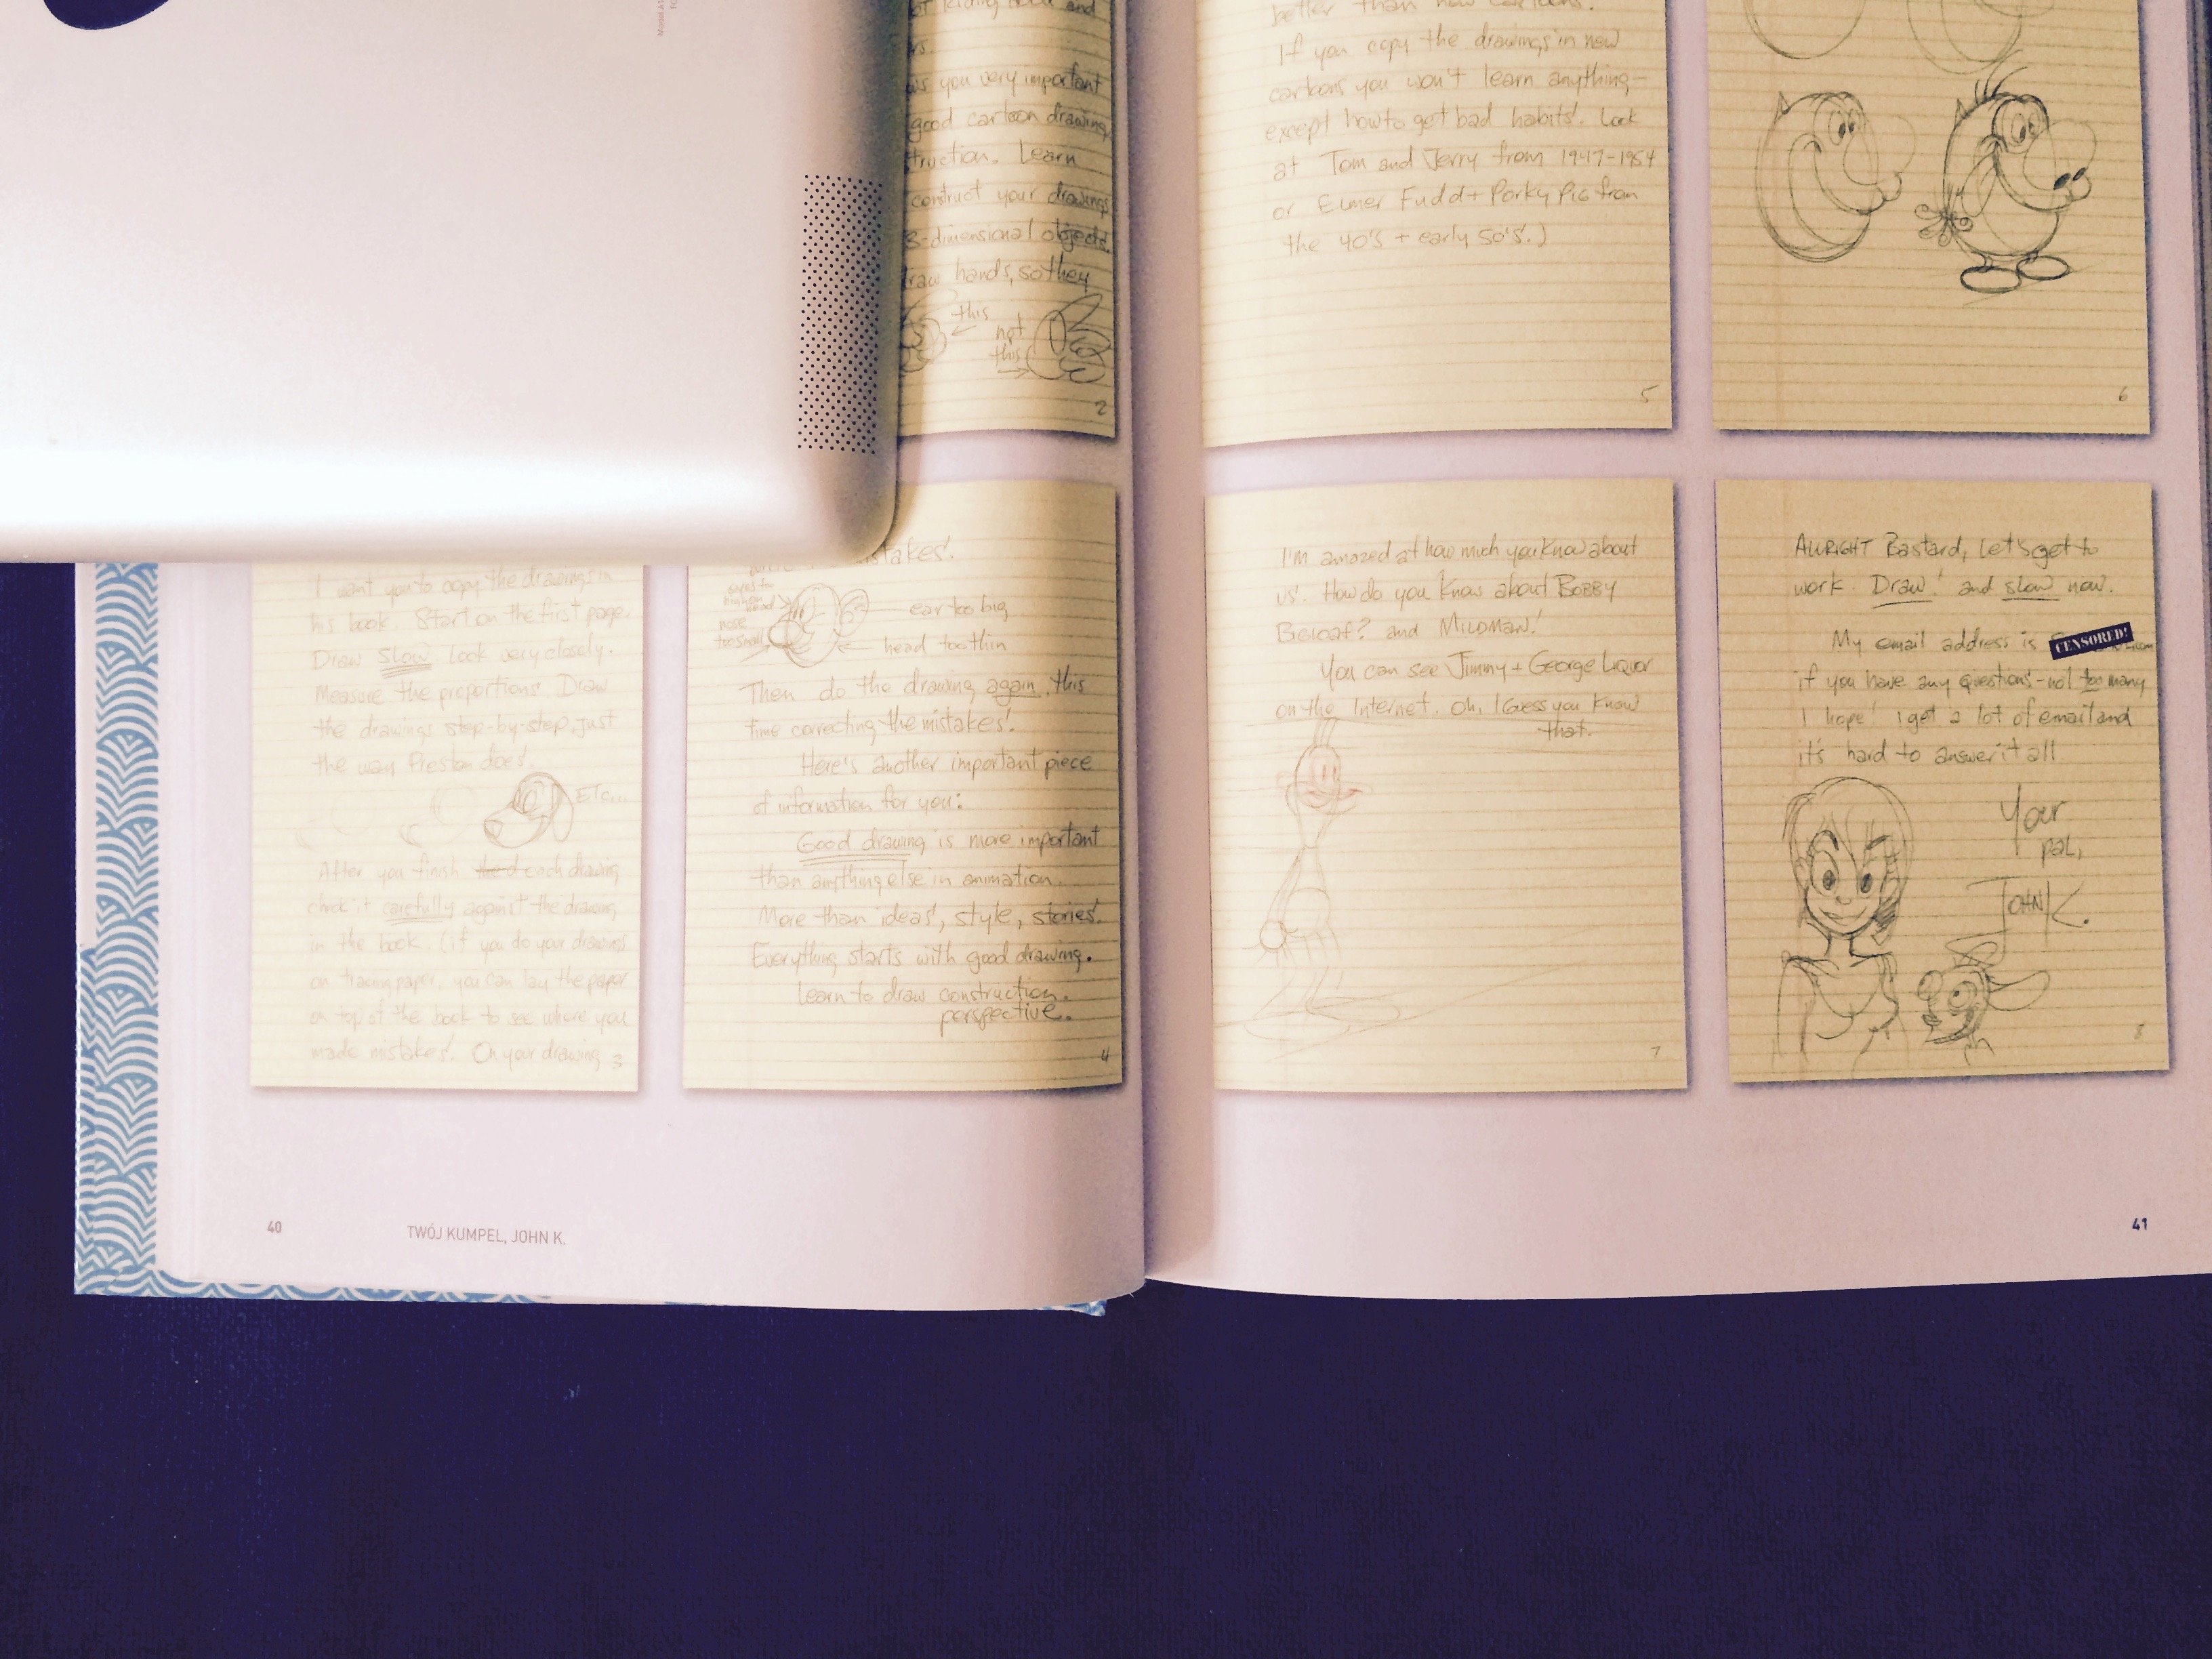 Model A1
and
rs.
ws you very important
good cartoon drawing
truction. Learn
construct your drawings
3-dimensional objects.
raw hands, so they
this
not
this
2
I want you to copy the drawings in
his book. Start on the first page.
Draw slow. Look very closely.
Measure the proportions. Draw
the drawings step-by-step, just
the way Preston does.
Etc...
After you finish the d each drawing,
check it carefully against the drawing
in the book. (if you do your drawings
on tracing paper, you can lay the paper
on top of the book to see where you
made mistakes! On your drawing
3
stakes!
nose
too small
ear too big
head too thin
Then do the drawing again, this
time correcting the mistakes!
Here's another important piece
of information for you:
Good drawing is more important
than anything else in animation.
More than ideas, style, stories.
Everything starts with good drawing.
Learn to draw construction.
perspective.
4
40
TWÓJ KUMPEL, JOHN K.
better than new cartoons.
If you copy the drawings in new
cartoons you won't learn anything—
except how to get bad habits! Look
at Tom and Jerry from 1947-1954
or Elmer Fudd + Porky Pig from
the 40's + early 50's.)
5
6
I'm amazed at how much you know about
us! How do you know about Bobby
Bigloaf? and Mildman!
You can see Jimmy + George Liquor
on the Internet. Oh, I Guess you know
that.
7
Allright Bastard, Let's get to
work. Draw! and slow now.
My email address is CENSORED!
if you have any questions - not too many
I hope! I get a lot of email and
it's hard to answer it all.
Your
pal,
John K.
8
41